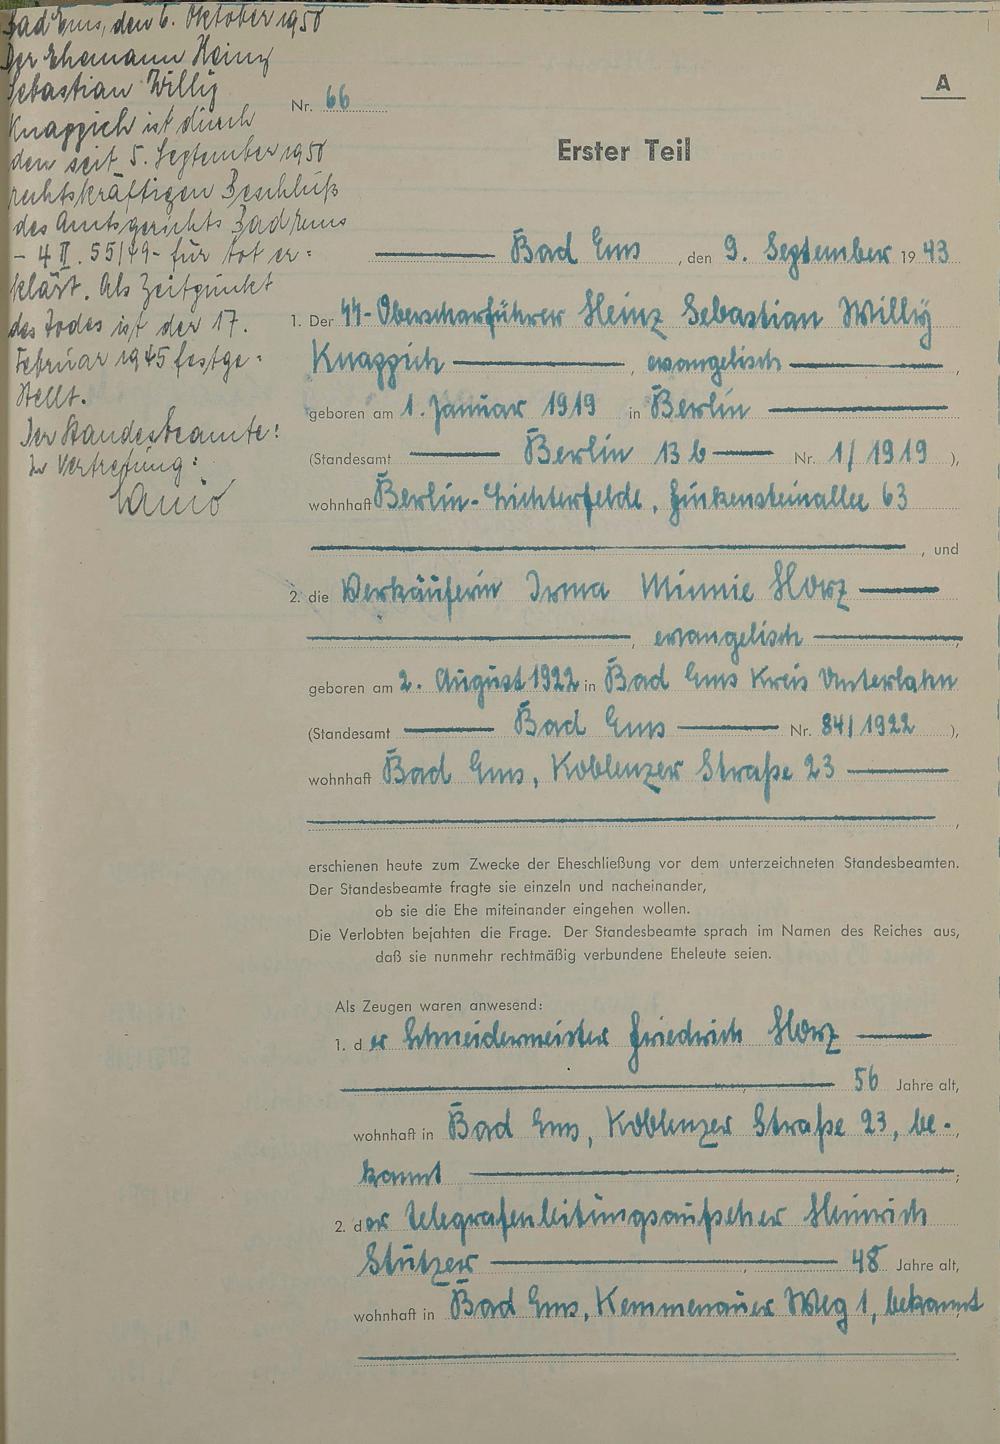 Bad Ems, den 6. Oktober 1950
Der Ehemann Heinz
Sebastian Willy
Knappich ist durch
den seit 5. September 1950
rechtskräftigen Beschluß
des Amtsgerichts Bad Ems
- 4 II. 55/49 - für tot er=
klärt. Als Zeitpunkt
des Todes ist der 17.
Februar 1945 festge=
stellt.
Der Standesbeamte:
In Vertretung:
A
Nr. 66
Erster Teil
Bad Ems, den 9. September 1943
1. Der SS-Oberscharführer Heinz Sebastian Willy
Knappich, evangelisch,
geboren am 1. Januar 1919 in Berlin
(Standesamt Berlin 13 b Nr. 1/1919),
wohnhaft Berlin-Lichterfelde, Finkensteinallee 63
, und
2. die Verkäuferin Irma Minnie Horz
, evangelisch,
geboren am 2. August 1922 in Bad Ems Kreis Unterlahn
(Standesamt Bad Ems Nr. 84/1922),
wohnhaft Bad Ems, Koblenzer Straße 23
,
erschienen heute zum Zwecke der Eheschließung vor dem unterzeichneten Standesbeamten.
Der Standesbeamte fragte sie einzeln und nacheinander,
ob sie die Ehe miteinander eingehen wollen.
Die Verlobten bejahten die Frage. Der Standesbeamte sprach im Namen des Reiches aus,
daß sie nunmehr rechtmäßig verbundene Eheleute seien.
Als Zeugen waren anwesend:
1. der Schneidermeister Friedrich Horz
56 Jahre alt,
wohnhaft in Bad Ems, Koblenzer Straße 23, be-
kannt;
2. der Telegrafenleitungsaufseher Heinrich
Stützer, 48 Jahre alt,
wohnhaft in Bad Ems, Kemmenauer Weg 1, bekannt